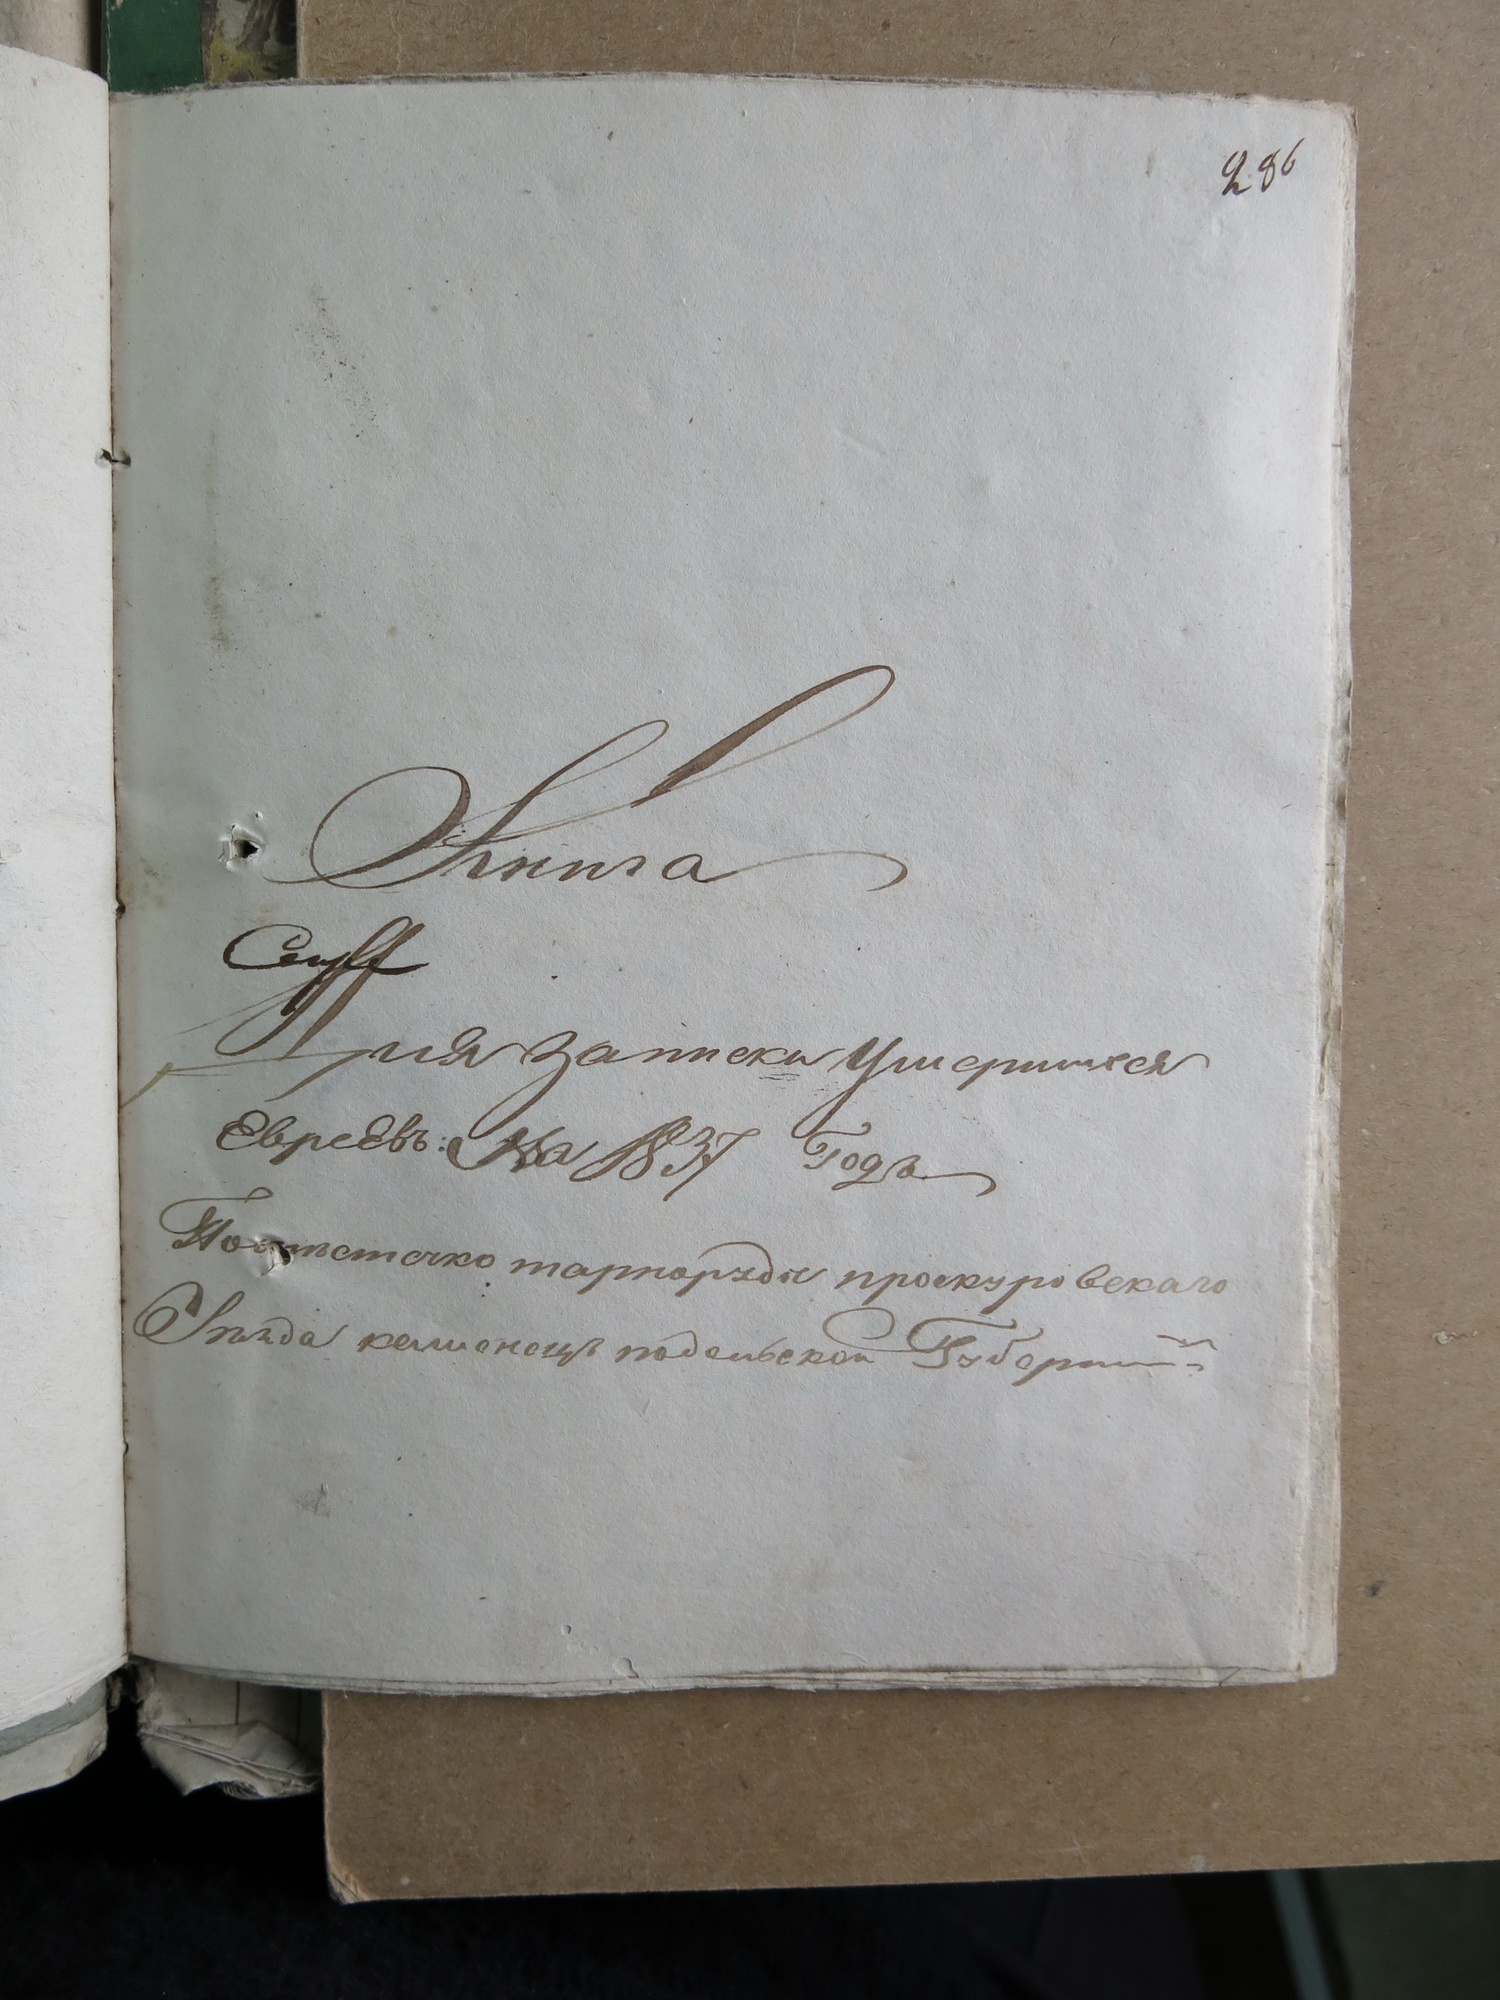 286
Книга
Для записки Умеришхся
Евреевъ: На 1837 Годъ
По местечко тарноруды проскуровскаго
Уѣзда каменецъ подольской Губернии